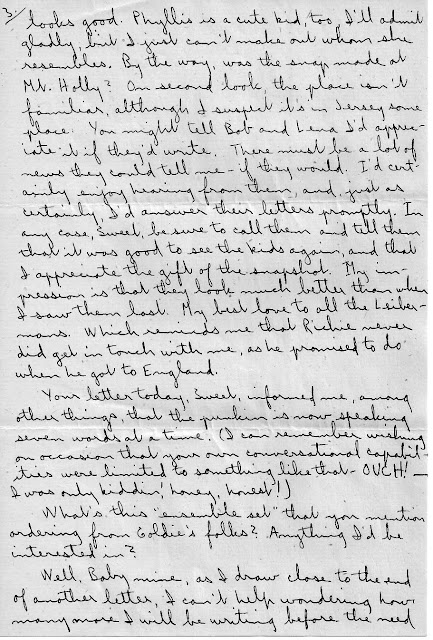 3/
looks good. Phyllis is a cute kid, too, I'll admit
gladly, but I just can't make out whom she
resembles. By the way, was the snap made at
Mt. Holly? On second look, the place isn't
familiar, although I suspect it's in Jersey some
place. You might tell Bob and Lena I'd appre-
ciate it if they'd write. There must be a lot of
news they could tell me - if they would. I'd cert-
ainly enjoy hearing from them, and, just as
certainly, I'd answer their letters promptly. In
any case, Sweet, be sure to call them and tell them
that it was good to see the kids again, and that
I appreciate the gift of the snapshot. My im-
pression is that they look much better than when
I saw them last. My best love to all the Leiber-
mans. Which reminds me that Richie never
did get in touch with me, as he promised to do
when he got to England.
Your letter today, Sweet, informed me, among
other things, that the punkin is now speaking
seven words at a time. (I can remember wishing
on occasion that your own conversational capabil-
ities were limited to something like that - OUCH! —
I was only kiddin', honey, honest!)
What's this "ensemble set" that you mention
ordering from Goldie's folks? Anything I'd be
interested in?
Well, Baby mine, as I draw close to the end
of another letter, I can't help wondering how
many more I will be writing before the need